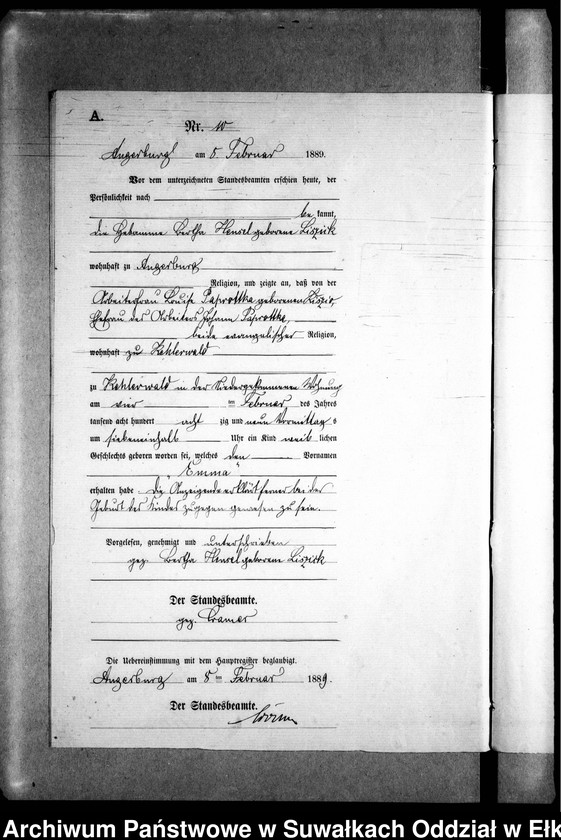 A.
Nr. 10
Angerburg am 5 Februar 1889.
Vor dem unterzeichneten Standesbeamten erschien heute, der
Persönlichkeit nach
be kannt,
die Hebamme Bertha Hensel geborene Liszick
wohnhaft zu Angerburg
Religion, und zeigte an, daß von der
Arbeiterfrau Louise Paprottka geborenen
Ehefrau des Arbeiters Johann Paprottka,
beide evangelischer Religion,
wohnhaft zu Kehlerwald
zu Kehlerwald in der Niedergekommenen Wohnung
am vier ten Februar des Jahres
tausend acht hundert acht zig und neun Vormittag s
um siebeneinhalb Uhr ein Kind weib lichen
Geschlechts geboren worden sei, welches den Vornamen
"Emma"
erhalten habe. Die Anzeigende erklärt ferner bei der
Geburt des Kindes zugegen gewesen zu sein.
Vorgelesen, genehmigt und unterschrieben
gez. Bertha Hensel geborene Liszick
Der Standesbeamte.
gez. Cramer
Die Uebereinstimmung mit dem Hauptregister beglaubigt.
Angerburg am 8 ten Februar 1889.
Der Standesbeamte.
Archiwum Państwowe w Suwałkach Oddział w Ełk